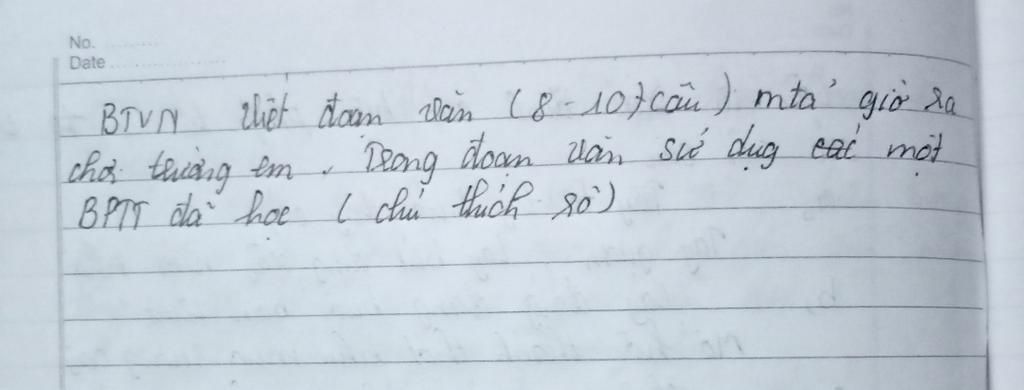 No. ............
Date ........................
BTVN Viết đoạn văn (8-10 câu) mtả giờ ra
chơi trường em. Trong đoạn văn sử dụg các một
BPTT đã học (chú thích rõ)